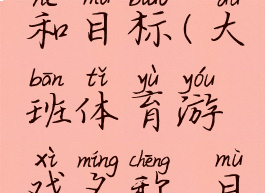 hé mù biāo dà
和目标(大
bān tǐ yù yóu
班体育游
xì míng chēng mù
戏名称 目